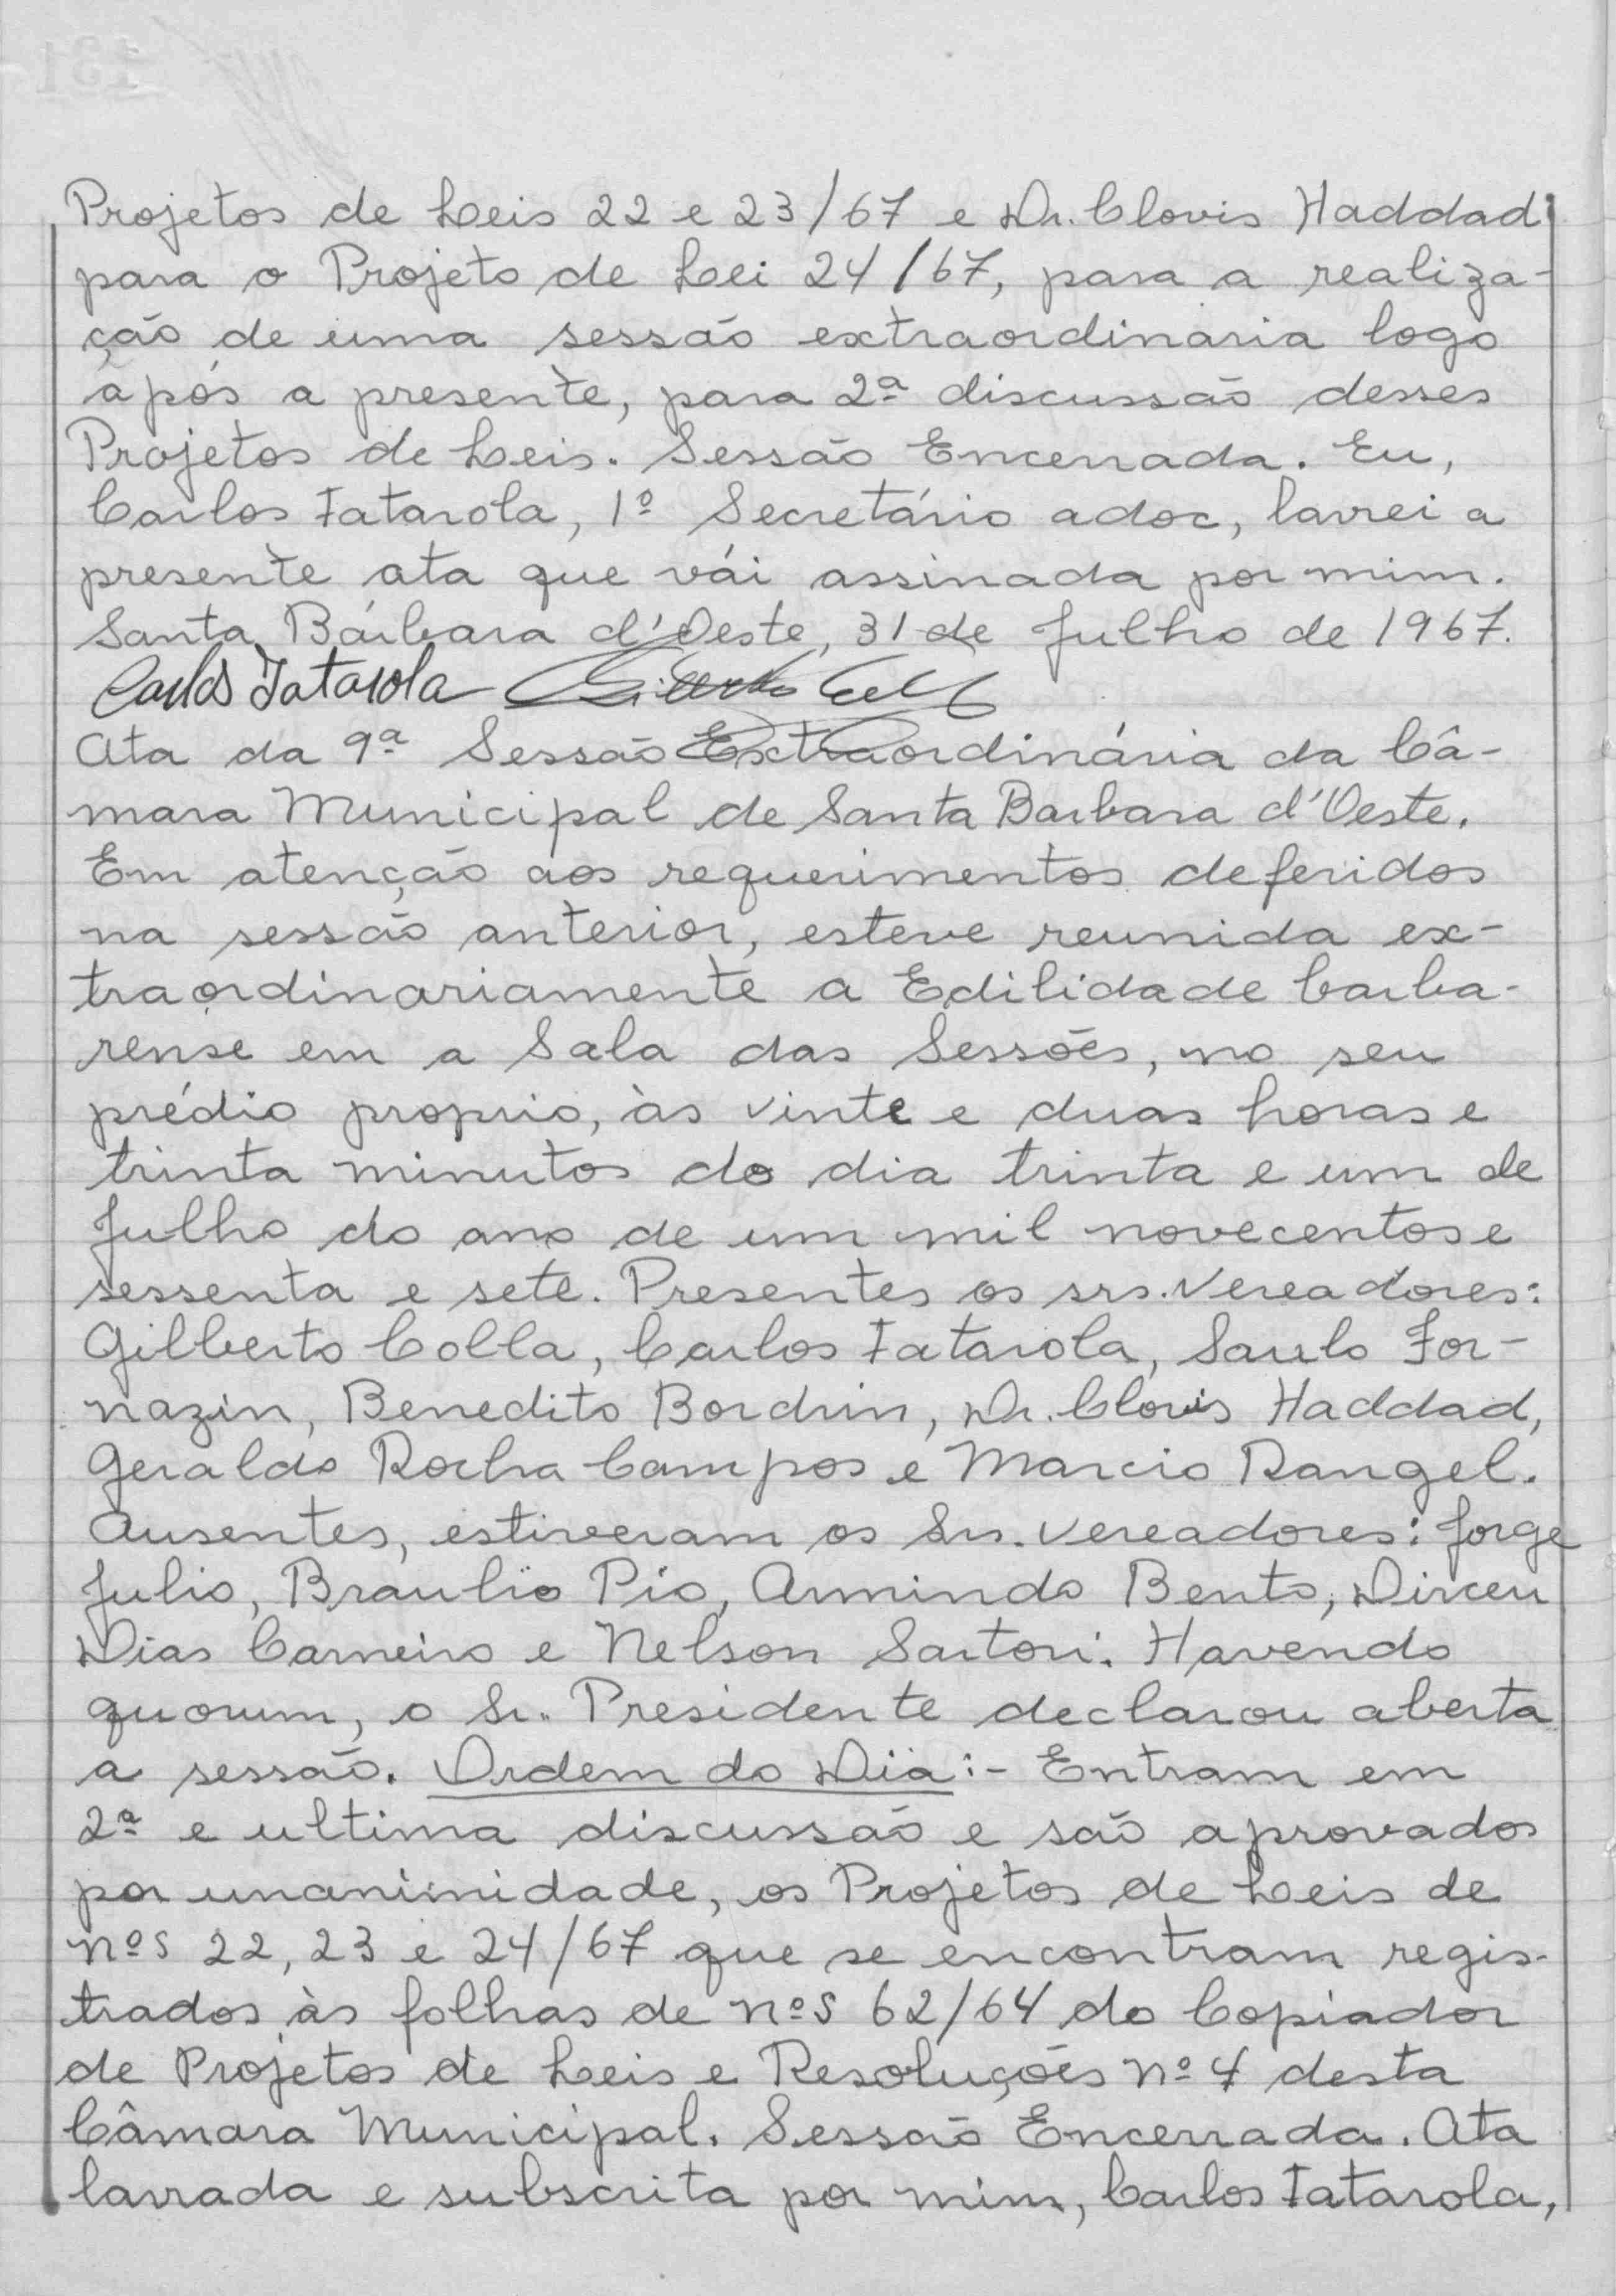 Projetos de Leis 22 e 23/67 e Dr. Clovis Haddad
para o Projeto de Lei 24/67, para a realiza-
ção de uma sessão extraordinaria logo
após a presente, para 2ª discussão desses
Projetos de Leis. Sessão Encerrada. Eu,
Carlos Fatarola, 1º Secretário adoc, lavrei a
presente ata que vái assinada por mim.
Santa Bárbara d'Oeste, 31 de Julho de 1967.
Carlos Fatarola
Ata da 9ª Sessão Extraordinária da Câ-
mara Municipal de Santa Barbara d'Oeste.
Em atenção aos requerimentos deferidos
na sessão anterior, esteve reunida ex-
traordinariamente a Edilidade barba-
rense em a Sala das Sessões, no seu
prédio proprio, às vinte e duas horas e
trinta minutos do dia trinta e um de
Julho do ano de um mil novecentos e
sessenta e sete. Presentes os srs. Vereadores:
Gilberto Colla, Carlos Fatarola, Saulo For-
nazin, Benedito Bordrin, Dr. Clovis Haddad,
Geraldo Rocha Campos e Marcio Rangel.
Ausentes, estiveram os Srs. Vereadores: Jorge
Julio, Braulio Pio, Armindo Bento, Dirceu
Dias Carneiro e Nelson Sartori. Havendo
quorum, o Sr. Presidente declarou aberta
a sessão. Ordem do Dia:- Entram em
2ª e ultima discussão e são aprovados
por unanimidade, os Projetos de Leis de
nºs 22, 23 e 24/67 que se encontram regis-
trados às folhas de nºs 62/64 do Copiador
de Projetos de Leis e Resoluções nº 4 desta
Câmara Municipal. Sessão Encerrada. Ata
lavrada e subscrita por mim, Carlos Fatarola,